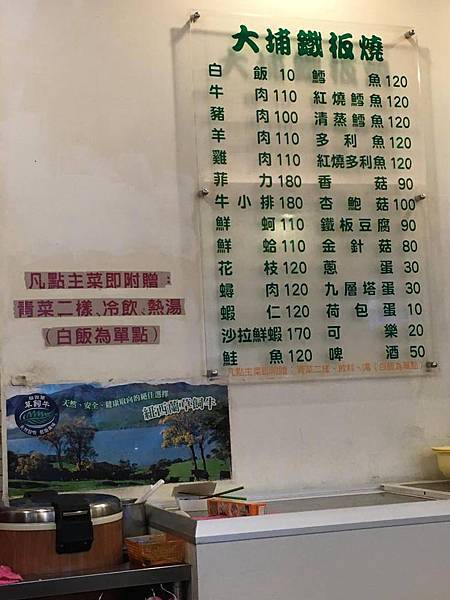 大埔鐵板燒
白飯 10
牛肉 110
豬肉 100
羊肉 110
雞肉 110
菲力 180
牛小排 180
鮮蚵 110
鮮蛤 110
花枝 120
蟳肉 120
蝦仁 120
沙拉鮮蝦 170
鮭魚 120
鱈魚 120
紅燒鱈魚 120
清蒸鱈魚 120
多利魚 120
紅燒多利魚 120
香菇 90
杏鮑菇 100
鐵板豆腐 90
金針菇 80
蔥蛋 30
九層塔蛋 30
荷包蛋 10
可樂 20
啤酒 50
凡點主菜即附贈：青菜二樣、飲料、湯（白飯為單點）
凡點主菜即附贈：
青菜二樣、冷飲、熱湯
（白飯為單點）
天然、安全、健康取向的絕佳選擇
紐西蘭草飼牛
草飼牛